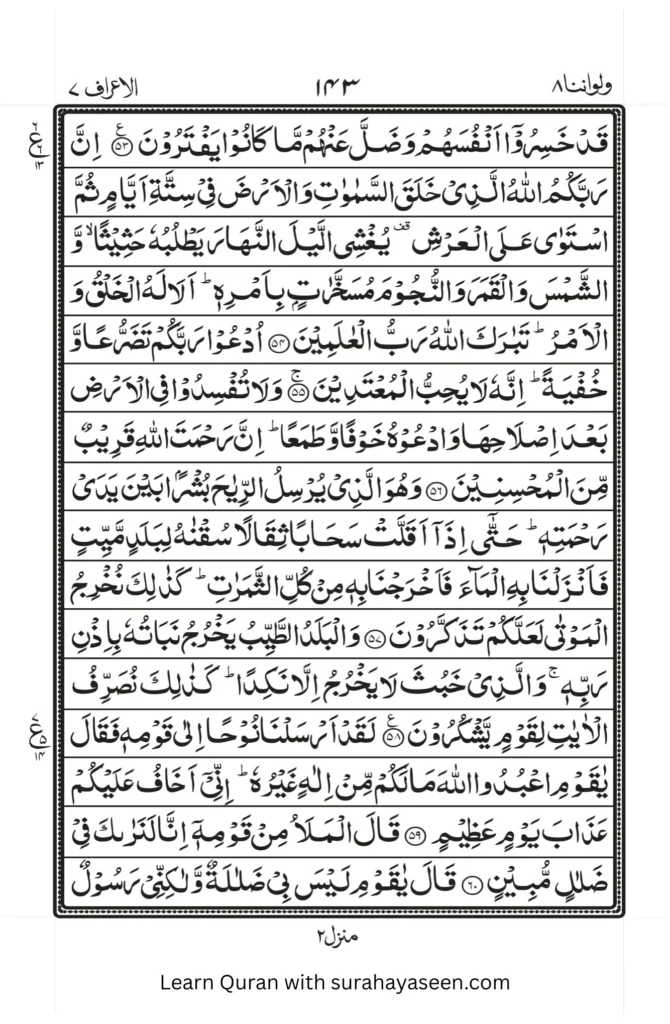 ولواننا ۸ ۱۴۳ الاعراف ۷
قَدْ خَسِرُوْۤا اَنْفُسَهُمْ وَضَلَّ عَنْهُمْ مَّا كَانُوْا يَفْتَرُوْنَ ﴿۵۳﴾ اِنَّ
رَبَّكُمُ اللّٰهُ الَّذِىْ خَلَقَ السَّمٰوٰتِ وَالْاَرْضَ فِىْ سِتَّةِ اَيَّامٍ ثُمَّ
اسْتَوٰى عَلَى الْعَرْشِ ۫ يُغْشِى الَّيْلَ النَّهَارَ يَطْلُبُهٗ حَثِيْثًا ۙ وَّ
الشَّمْسَ وَالْقَمَرَ وَالنُّجُوْمَ مُسَخَّرٰتٍۭ بِاَمْرِهٖ ؕ اَلَا لَهُ الْخَلْقُ وَ
الْاَمْرُ ؕ تَبٰرَكَ اللّٰهُ رَبُّ الْعٰلَمِيْنَ ﴿۵۴﴾ اُدْعُوْا رَبَّكُمْ تَضَرُّعًا وَّ
خُفْيَةً ؕ اِنَّهٗ لَا يُحِبُّ الْمُعْتَدِيْنَ ۚ﴿۵۵﴾ وَلَا تُفْسِدُوْا فِى الْاَرْضِ
بَعْدَ اِصْلَاحِهَا وَادْعُوْهُ خَوْفًا وَّطَمَعًا ؕ اِنَّ رَحْمَتَ اللّٰهِ قَرِيْبٌ
مِّنَ الْمُحْسِنِيْنَ ﴿۵۶﴾ وَهُوَ الَّذِىْ يُرْسِلُ الرِّيٰحَ بُشْرًۢا بَيْنَ يَدَىْ
رَحْمَتِهٖ ؕ حَتّٰۤى اِذَاۤ اَقَلَّتْ سَحَابًا ثِقَالًا سُقْنٰهُ لِبَلَدٍ مَّيِّتٍ
فَاَنْزَلْنَا بِهِ الْمَآءَ فَاَخْرَجْنَا بِهٖ مِنْ كُلِّ الثَّمَرٰتِ ؕ كَذٰلِكَ نُخْرِجُ
الْمَوْتٰى لَعَلَّكُمْ تَذَكَّرُوْنَ ﴿۵۷﴾ وَالْبَلَدُ الطَّيِّبُ يَخْرُجُ نَبَاتُهٗ بِاِذْنِ
رَبِّهٖ ۚ وَالَّذِىْ خَبُثَ لَا يَخْرُجُ اِلَّا نَكِدًا ؕ كَذٰلِكَ نُصَرِّفُ
الْاٰيٰتِ لِقَوْمٍ يَّشْكُرُوْنَ ﴿۵۸﴾ لَقَدْ اَرْسَلْنَا نُوْحًا اِلٰى قَوْمِهٖ فَقَالَ
يٰقَوْمِ اعْبُدُوا اللّٰهَ مَا لَكُمْ مِّنْ اِلٰهٍ غَيْرُهٗ ؕ اِنِّىْۤ اَخَافُ عَلَيْكُمْ
عَذَابَ يَوْمٍ عَظِيْمٍ ﴿۵۹﴾ قَالَ الْمَلَاُ مِنْ قَوْمِهٖۤ اِنَّا لَنَرٰىكَ فِىْ
ضَلٰلٍ مُّبِيْنٍ ﴿۶۰﴾ قَالَ يٰقَوْمِ لَيْسَ بِىْ ضَلٰلَةٌ وَّلٰكِنِّىْ رَسُوْلٌ
منزل ۲
Learn Quran with surahayaseen.com